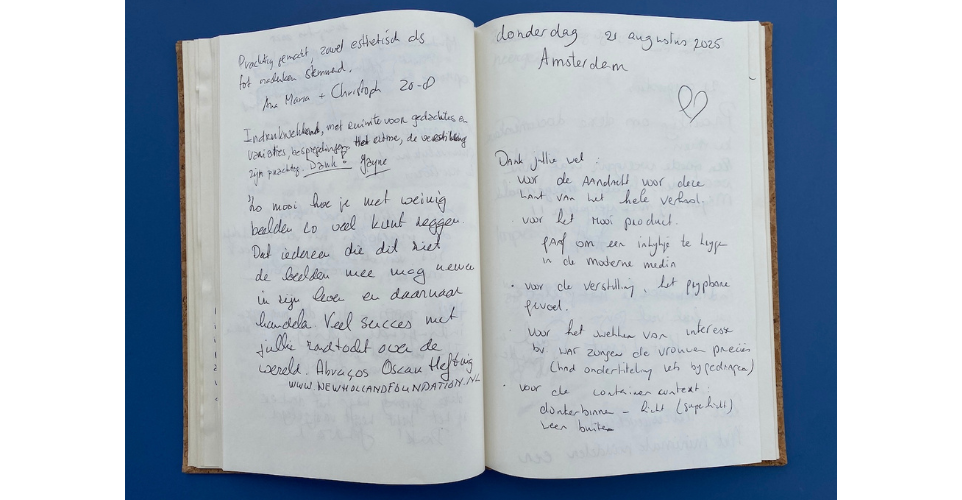 Prachtig gemaakt, zowel esthetisch als
tot nadenken stemmend.
Ana Maria + Christoph 20-8
Indrukwekkend, met ruimte voor gedachtes en
variaties, bespiegelingen. Het ritme, de verstilling
zijn prachtig. Dank! Jayne
Zo mooi hoe je met weinig
beelden zo veel kunt zeggen.
Dat iedereen die dit ziet
de beelden mee mag nemen
in zijn leven en daarnaar
handelen Veel succes met
jullie rondtocht over de
wereld. Abraços Oscar Hefting
WWW.NEWHOLLANDFOUNDATION.NL
donderdag 21 augustus 2025
Amsterdam
Dank jullie wel:
voor de aandacht voor deze
kant van het hele verhaal.
· voor het mooi product.
gaaf om een inkijkje te krijgen
in de moderne media
· voor de verstilling, het
gevoel.
· voor het wekken van interesse
bij wat zongen de vrouwen precies
(had ondertiteling iets bijgedragen)
· voor de container context:
donker binnen – licht (superlicht)
weer buiten